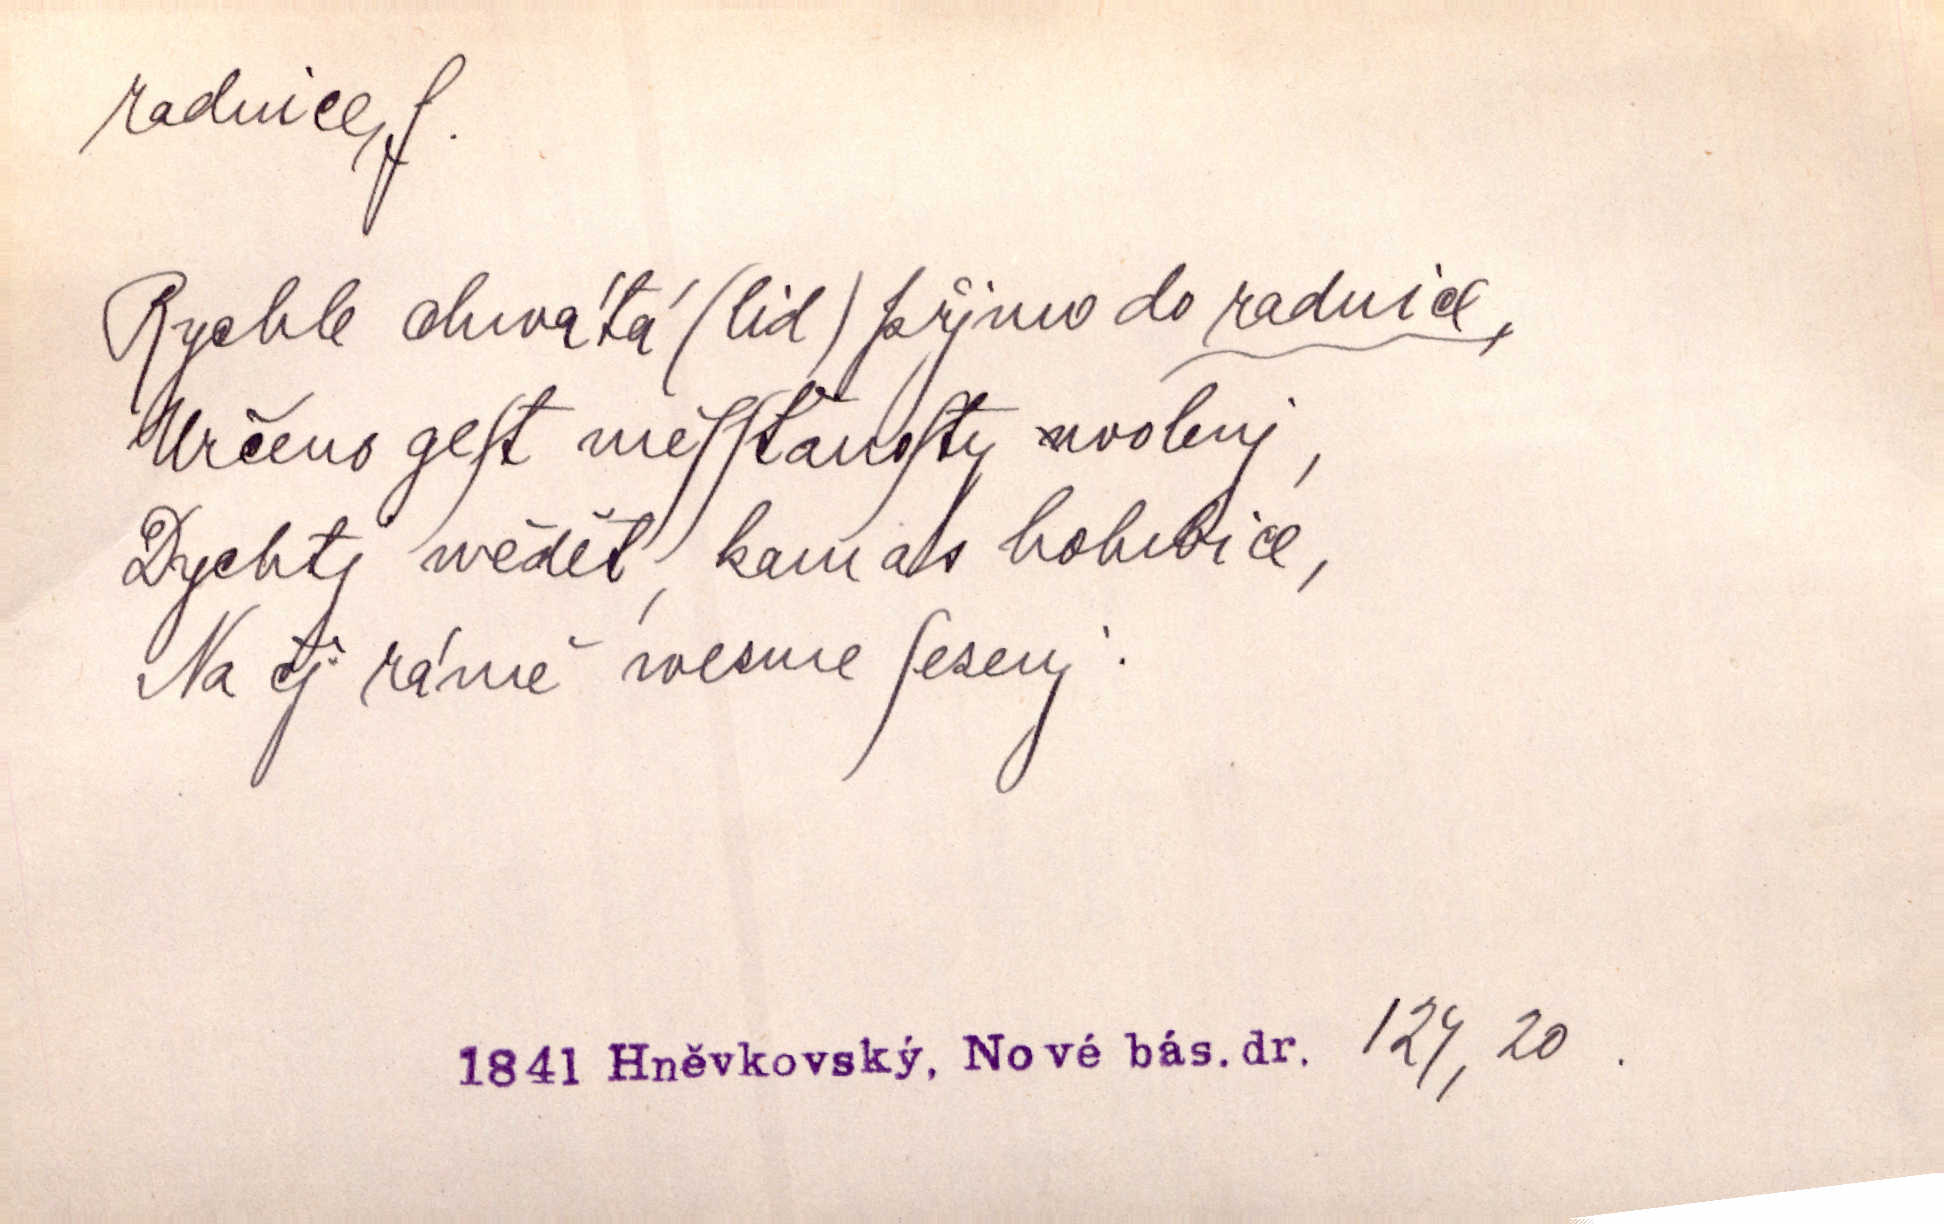 radnice, f.
Rychle chwátá (lid) přjmo do radnice,
Určeno geſt měſſťanoſty wolenj,
Dychtj wěděť, kam as holubice,
Na čj rámě wesme ſesenj.
1841 Hněvkovský, Nové bás. dr. 124, 20.